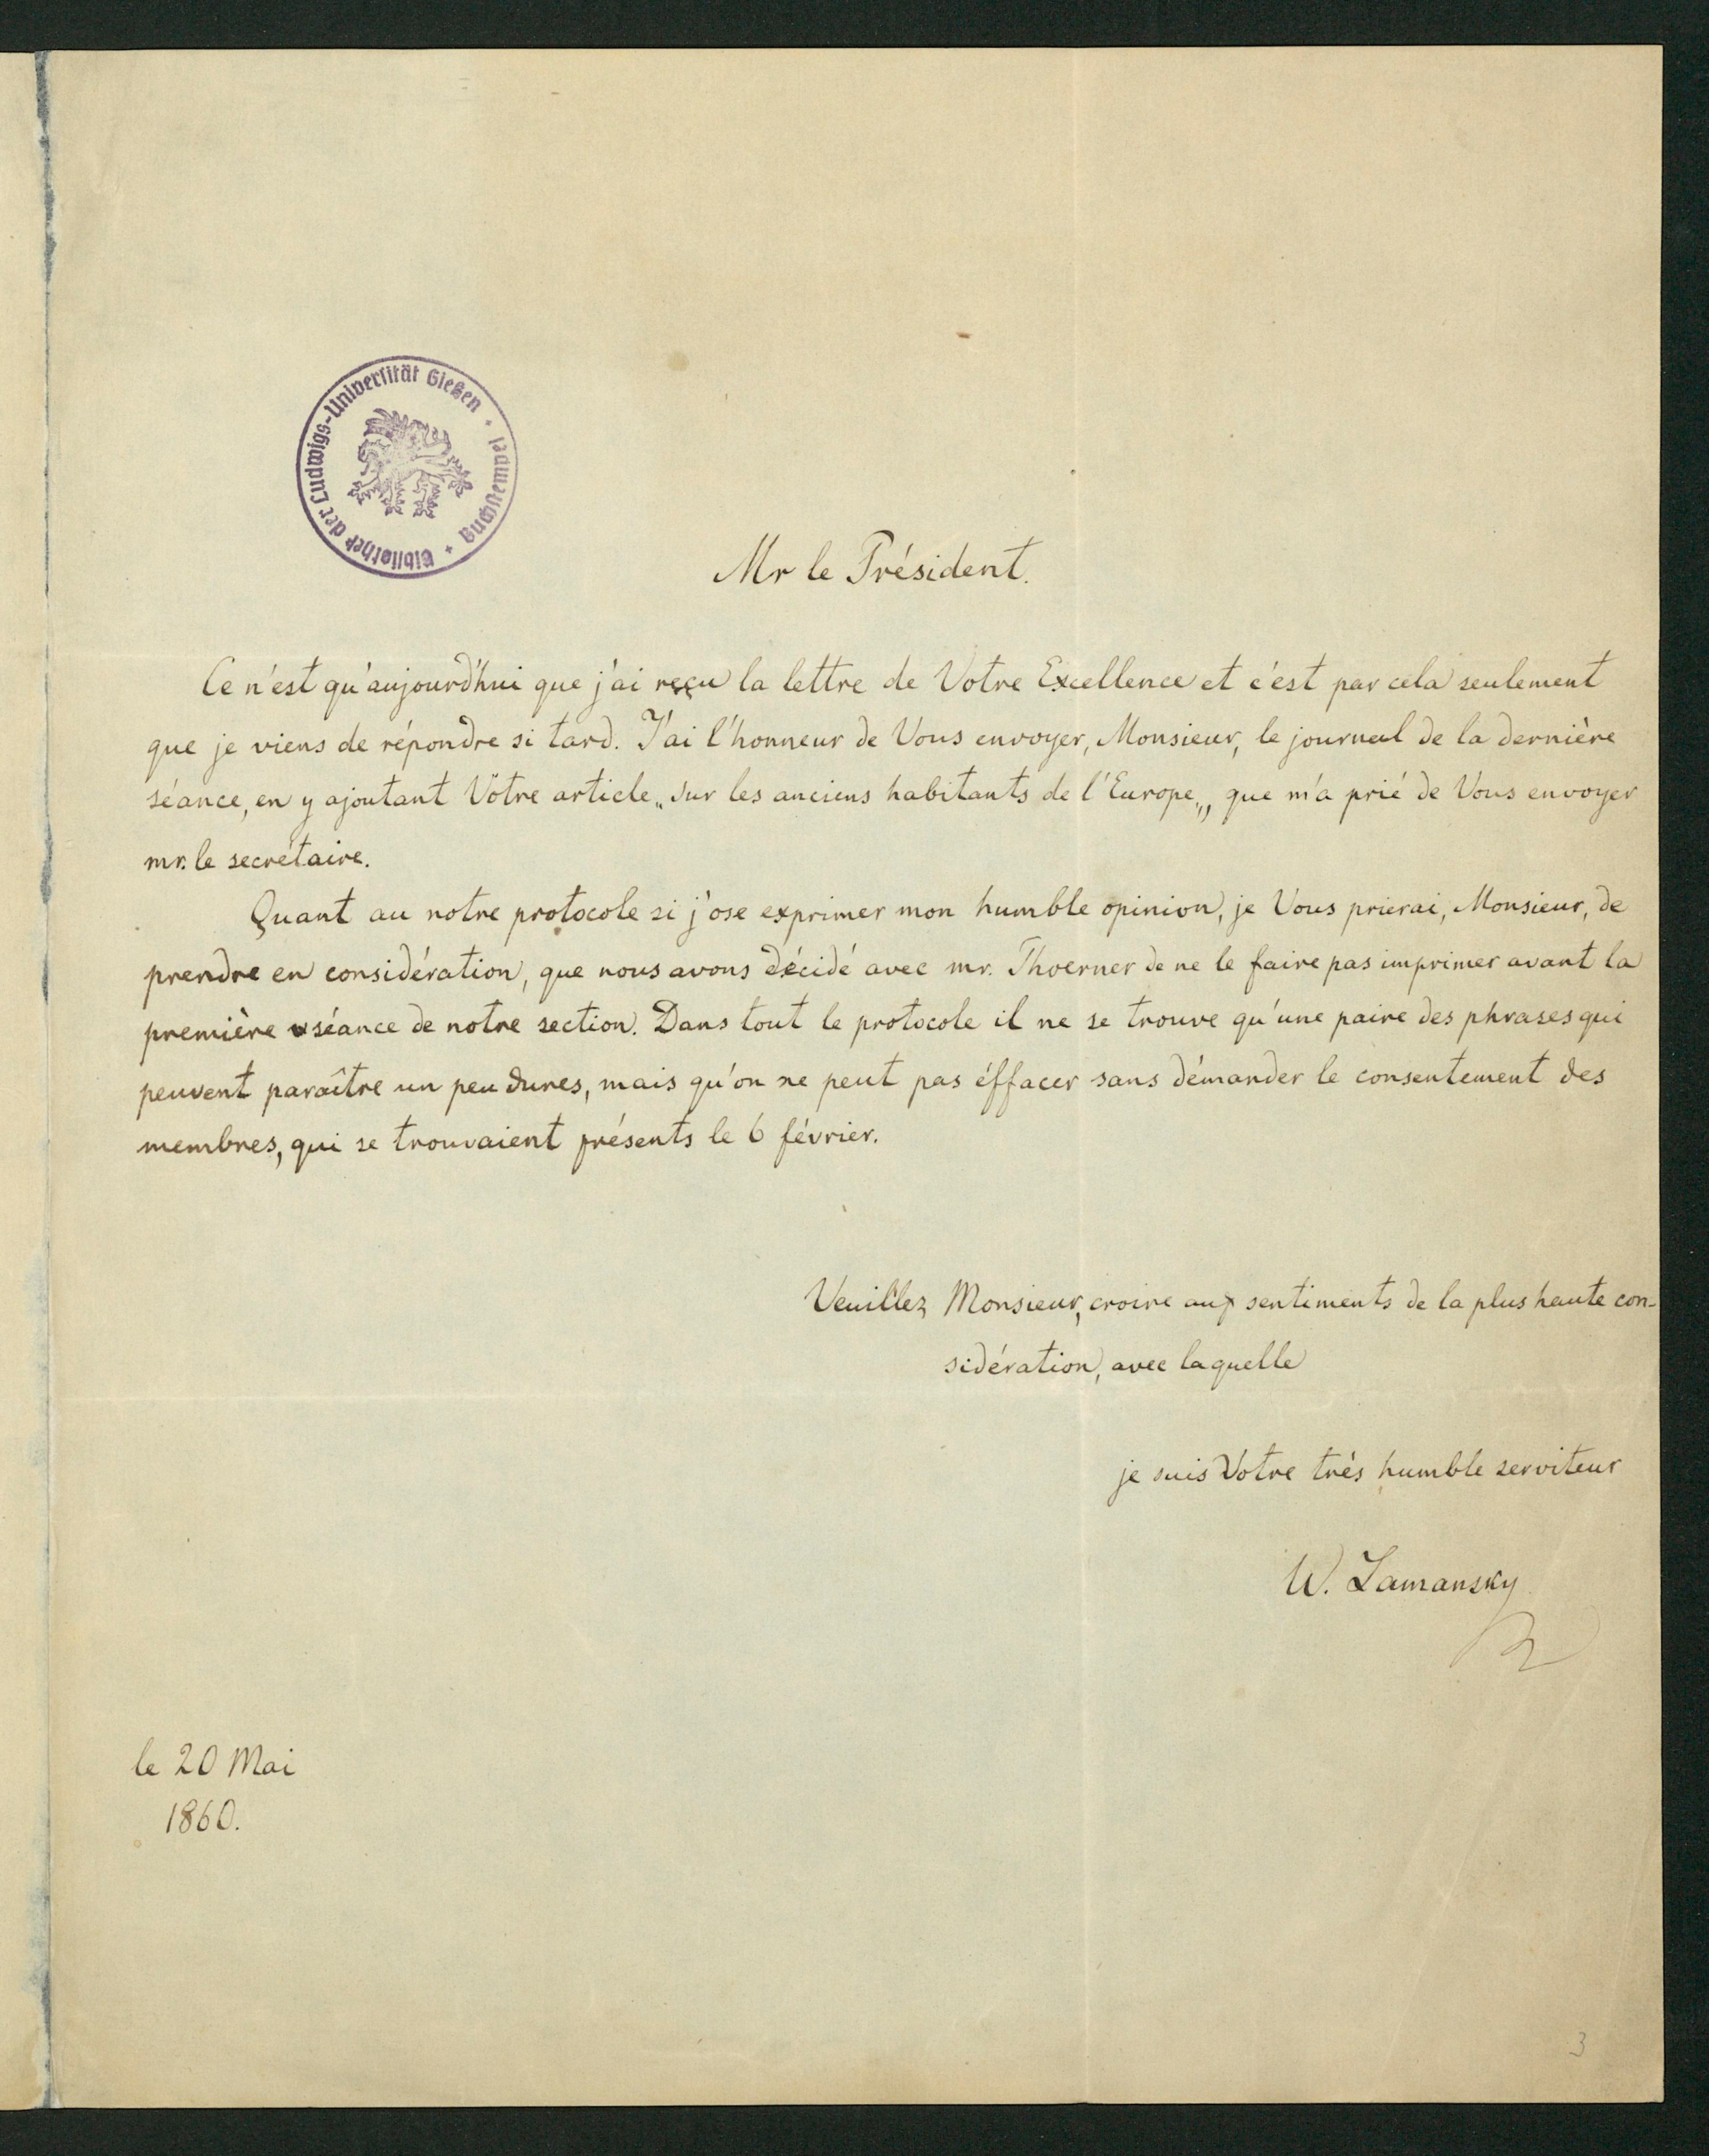 Bibliothek der Ludwigs-Universität Gießen + Buchstempel +
Mr le Président.
Ce n'est qu'aujourd'hui que j'ai reçu la lettre de Votre Excellence et c'est par cela seulement
que je viens de répondre si tard. J'ai l'honneur de Vous envoyer, Monsieur, le journal de la dernière
séance, en y ajoutant Vôtre article „sur les anciens habitants de l'Europe„, que m'a prié de Vous envoyer
mr. le secrétaire.
Quant au notre protocole si j'ose exprimer mon humble opinion, je Vous prierai, Monsieur, de
prendre en considération, que nous avons décidé avec mr. Thoerner de ne le faire pas imprimer avant la
première séance de notre section. Dans tout le protocole il ne se trouve qu'une paire des phrases qui
peuvent paraître un peu dures, mais qu'on ne peut pas éffacer sans démander le consentement des
membres, qui se trouvaient présents le 6 février.
Veuillez Monsieur, croire aux sentiments de la plus haute con-
sidération, avec laquelle
je suis Votre très humble serviteur
W. Lamansky
le 20 Mai
1860.
3